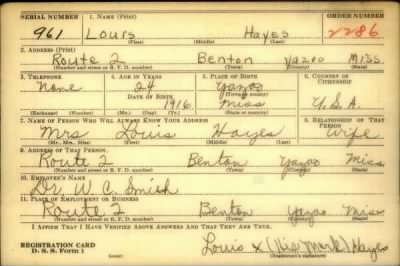 SERIAL NUMBER 1. NAME (Print) ORDER NUMBER
961 Lours Hayes 2286
(First) (Middle) (Last)
2. ADDRESS (Print)
Route 2 Benton Yazoo Miss
(Number and street or R. F. D. number) (Town) (County) (State)
3. TELEPHONE 4. AGE IN YEARS 5. PLACE OF BIRTH 6. COUNTRY OF CITIZENSHIP
None 24 Yazoo
DATE OF BIRTH (Town or county)
1916 Miss U.S.A.
(Exchange) (No.) (Mo.) (Day) (Yr.) (State or country)
7. NAME OF PERSON WHO WILL ALWAYS KNOW YOUR ADDRESS 8. RELATIONSHIP OF THAT PERSON
Mrs Louis Hayes Wife
(Mr., Mrs., Miss) (First) (Middle) (Last)
9. ADDRESS OF THAT PERSON
Route 2 Benton Yazoo Miss
(Number and street or R. F. D. number) (Town) (County) (State)
10. EMPLOYER'S NAME
Dr. W. C. Smith
11. PLACE OF EMPLOYMENT OR BUSINESS
Route 2 Benton Yazoo Miss
(Number and street or R. F. D. number) (Town) (County) (State)
I AFFIRM THAT I HAVE VERIFIED ABOVE ANSWERS AND THAT THEY ARE TRUE.
REGISTRATION CARD Louis X (His Mark) Hayes
D. S. S. Form 1 (over) (Registrant's signature)